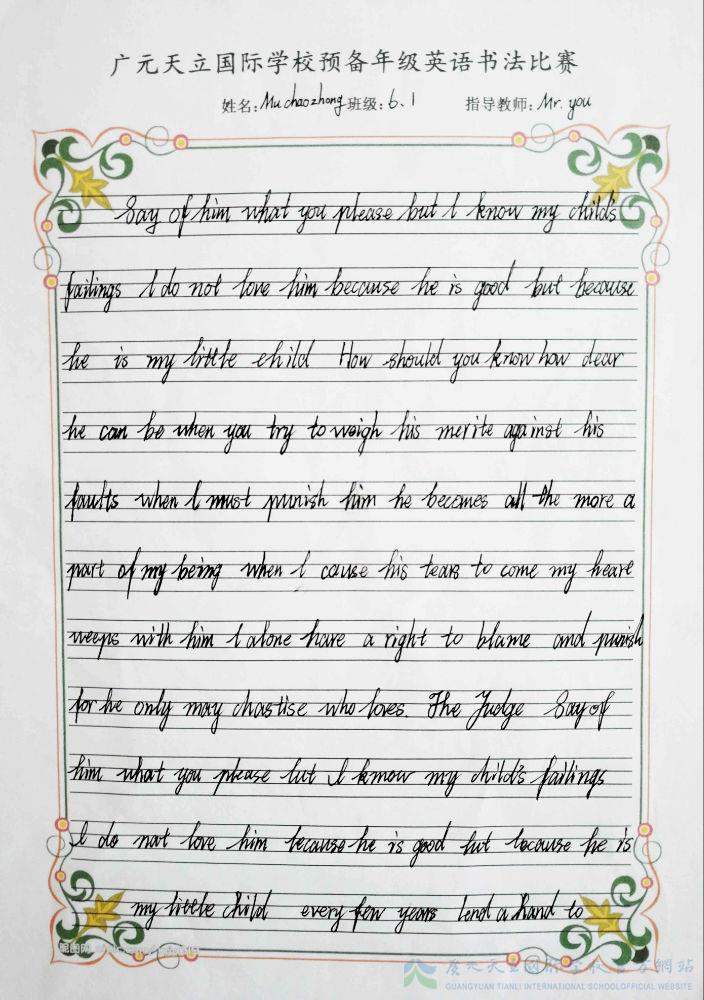 广元天立国际学校预备年级英语书法比赛
姓名: Mu chaozhong 班级: 6.1 指导教师: Mr. you
Say of him what you please but I know my child's
failings I do not love him because he is good but because
he is my little child How should you know how dear
he can be when you try to weigh his merite against his
faults when I must punish him he becomes all the more a
part of my being when I cause his tears to come my heare
weeps with him I alone have a right to blame and punish
for he only may chastise who loves. The Judge Say of
him what you please but I know my child's failings
I do not love him because he is good but because he is
my little child every few years lend a hand to
昵图网
广元天立国际学校官方網站
GUANGYUAN TIANLI INTERNATIONAL SCHOOLOFFICIAL WEBSITE